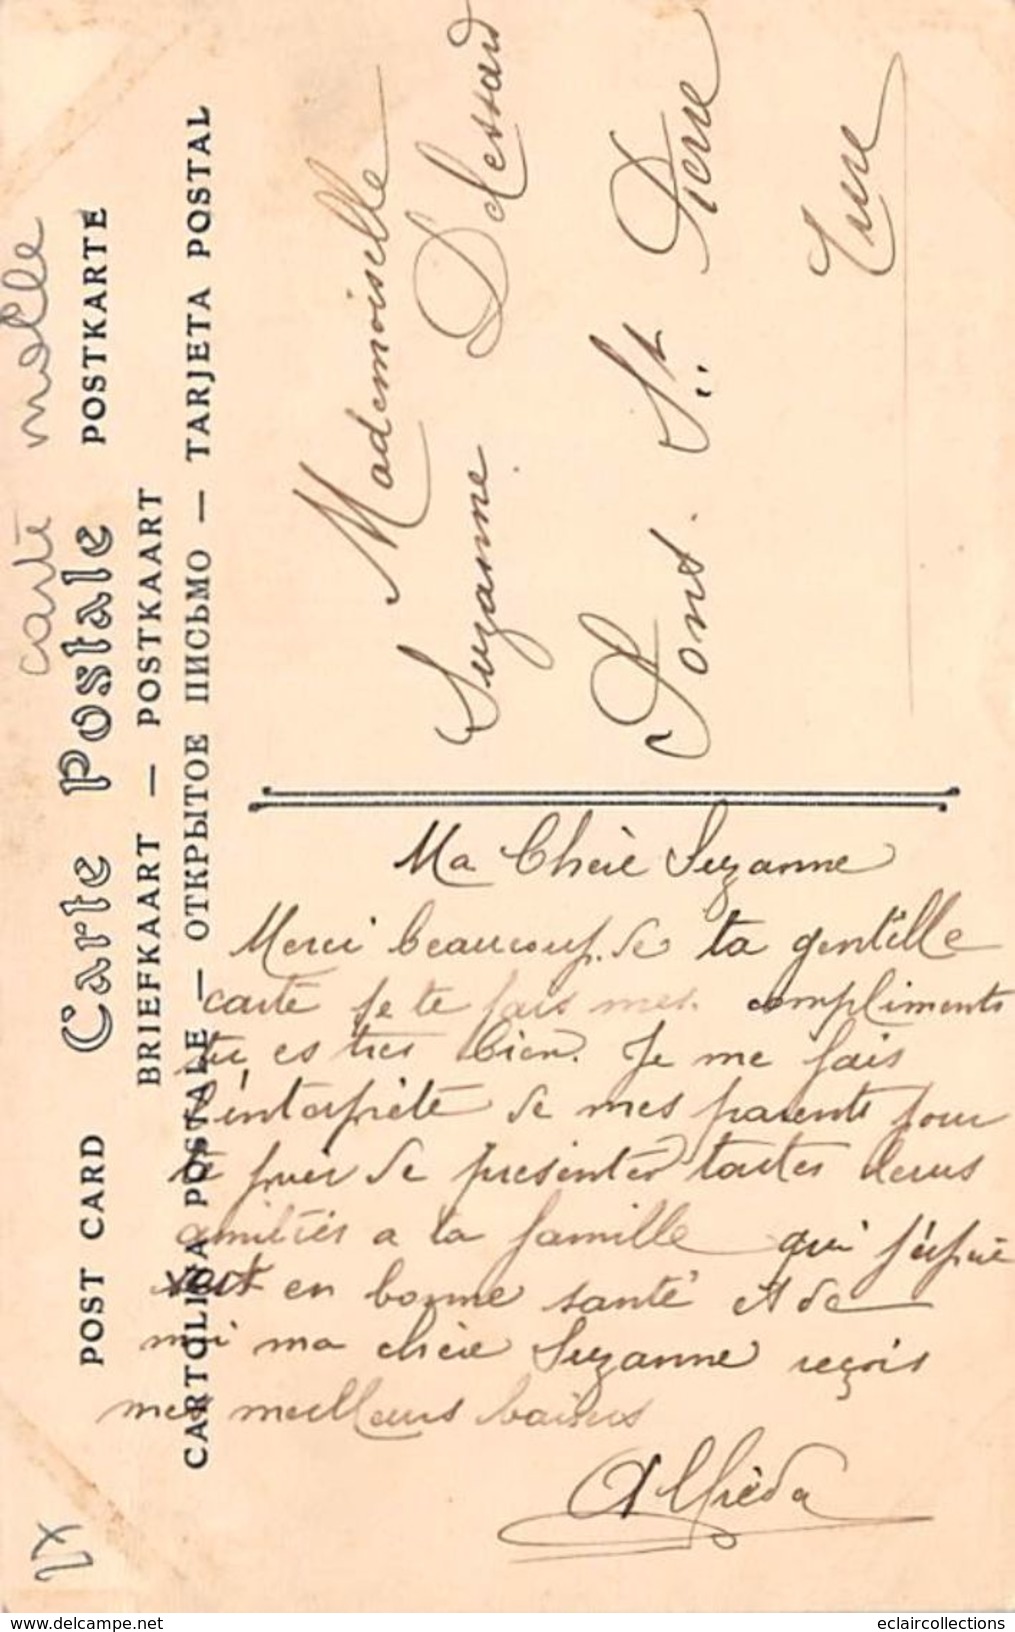 carte molle
POST CARD Carte Postale POSTKARTE
BRIEFKAART — POSTKAART
CARTOLINA POSTALE — ОТКРЫТОЕ ПИСЬМО — TARJETA POSTAL
Mademoiselle
Suzanne Delessard
Pont St Pierre
Eure
Ma Chère Suzanne
Merci beaucoup de ta gentille
carte je te fais mes compliments
tu es très bien. Je me fais
l'interprète de mes parents pour
te prier de presenter toutes leurs
amitiés a la famille qui j'espère
sont en bonne santé et de
moi ma chère Suzanne reçois
mes meilleurs baisers
Alfréda
www.delcampe.net
eclaircollections